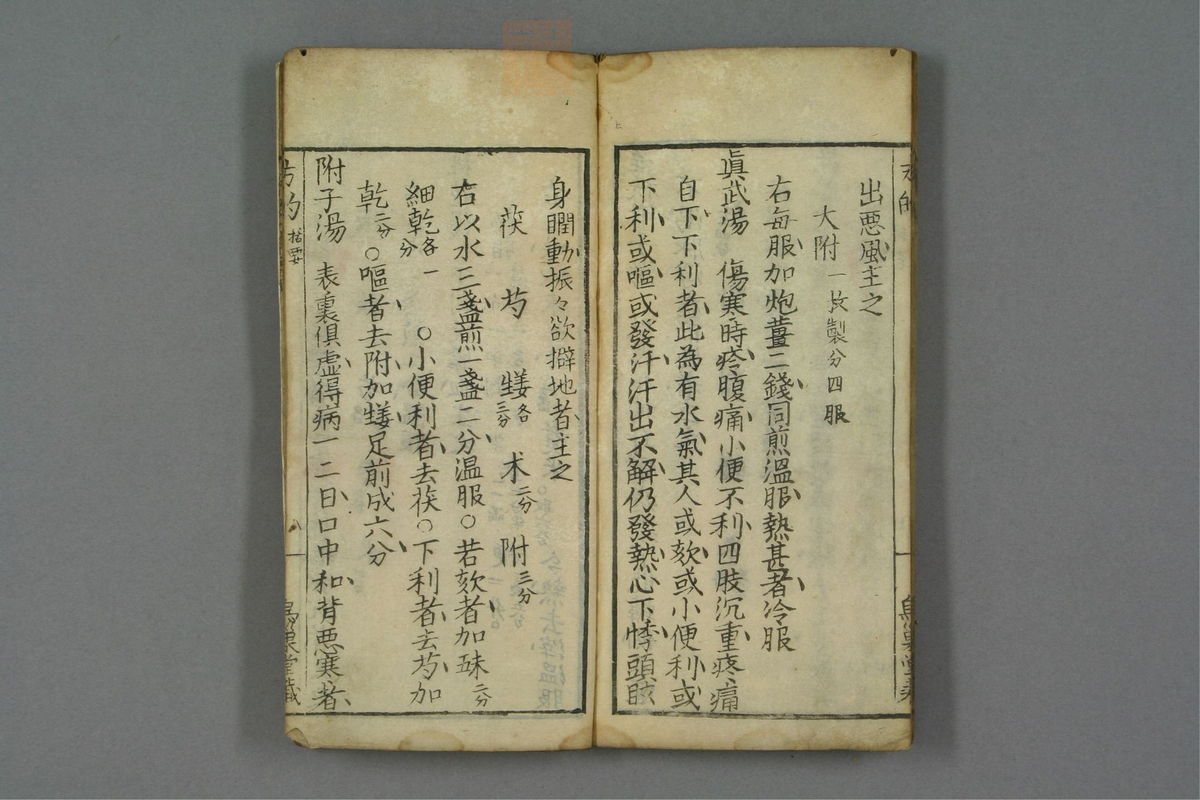 出悪風主之
大附一枚製分四服
右每服加炮薑二錢同煎溫服熱甚者冷服
眞武湯 傷寒時疼腹痛小便不利四肢沉重疼痛
自下下利者此為有水氣其人或欬或小便利或
下利或嘔或發汗汗出不解仍發熱心下悸頭眩
身瞤動振々欲擗地者主之
茯 芍 𦬆各三分 术二分 附三分
右以水三盞煎一盞二分温服○若欬者加味二分
細乾各一分 ○小便利者去茯○下利者去芍加
乾二分 ○嘔者去附加足前成六分
附子湯 表裏俱虛得病一二日口中和背悪寒者
方的 括要 八